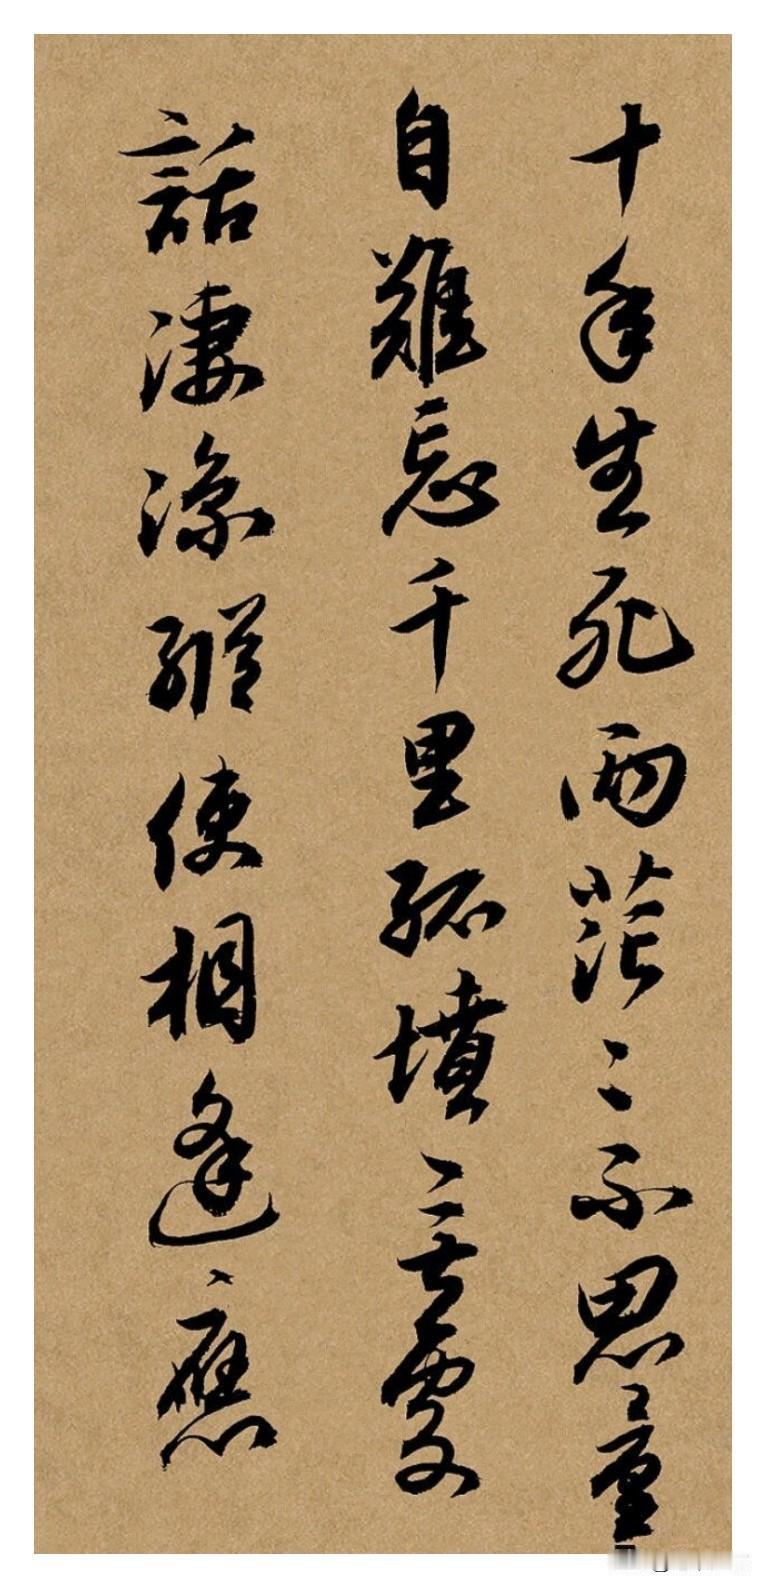 十年生死兩茫〻不思量
自難忘千里孤墳無處
話淒涼縱使相逢應